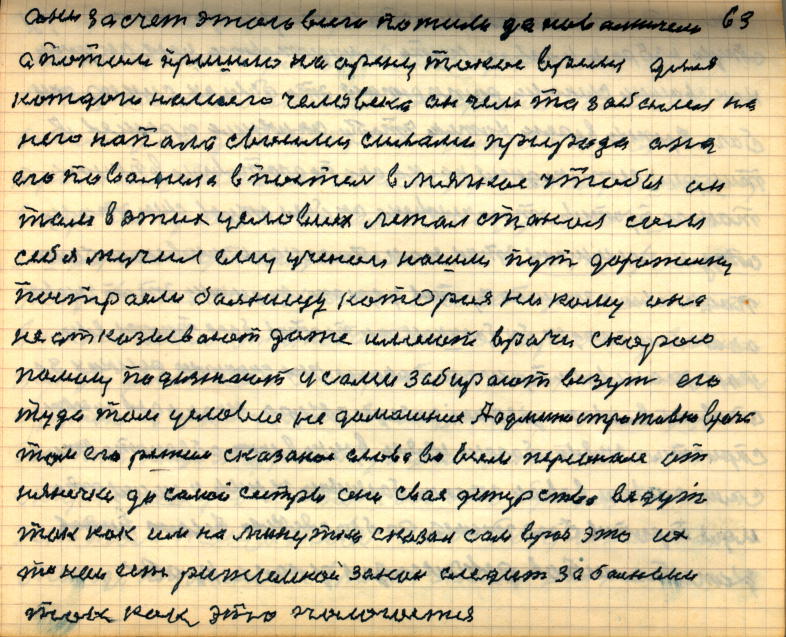 они за счет этого всего пожили да новаличели 63
а потом пришло на арену такое время для
каждого нашего человека он чем та заболел на
него напала своими силами природа она
его повалила в постел в мягкое чтобы он
там в этих условиях лежал стонал сам
себя мучил ему ученои нашли пут дорожку
построели балницу которая никому она
не отказывают даже имеют врачи скорою
помощ подезжают и сами забирают везут его
туда там условие не домашние Администротивно врачи
там его режим сказаное слово во всем персонале от
нянечки до самой сестры они свая дежурство ведут
так как им на минутки сказал сам врач это их
такои ест режимной закон следит за больным
так как это положется